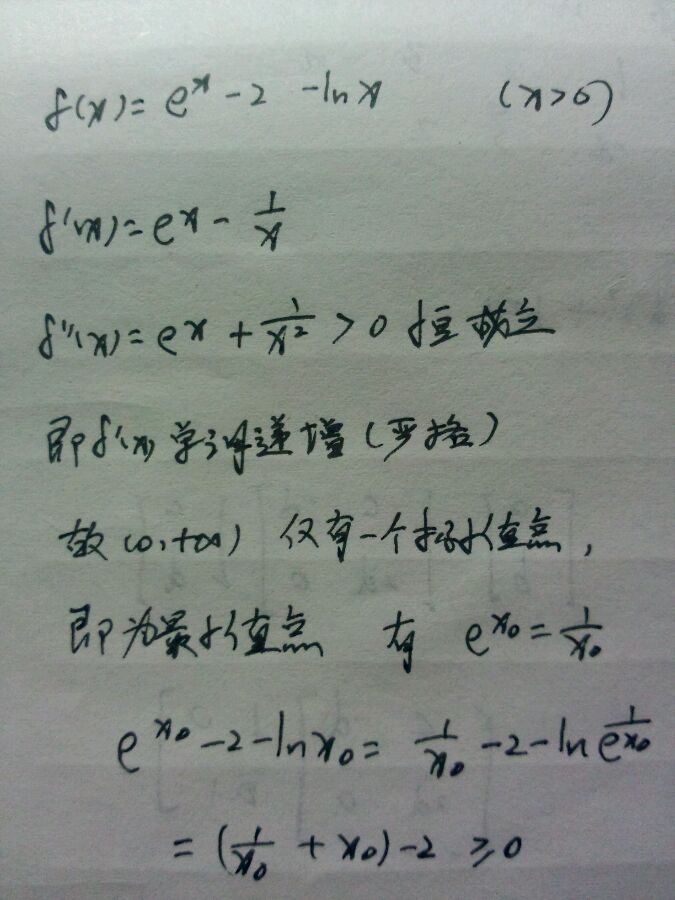 f(x)=e^x-2-lnx (x>0)
f'(x)=e^x-\frac{1}{x}
f''(x)=e^x+\frac{1}{x^2}>0 恒成立
即f'(x)单调递增(严格)
故(0,+∞) 仅有一个极小值点,
即为最小值点 有 e^{x_0}=\frac{1}{x_0}
e^{x_0}-2-lnx_0=\frac{1}{x_0}-2-ln\frac{1}{e^{x_0}}
=(\frac{1}{x_0}+x_0)-2≥0